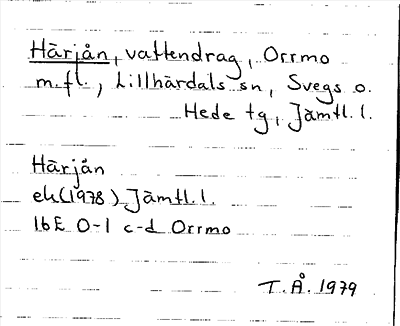 Härjån, vattendrag, Orrmo
m.fl., Lillhärdals sn, Svegs o.
Hede tg, Jämtl. l.
Härjån
ek (1978) Jämtl. l.
16E 0-1 c-d Orrmo
T.Å. 1979